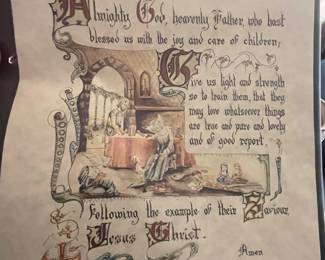 Almighty God, heavenly Father, who hast
blessed us with the joy and care of children;
Give us light and strength
so to train them, that they
may love whatsoever things
are true and pure and lovely
and of good report,
Following the example of their Saviour,
Jesus Christ.
Amen